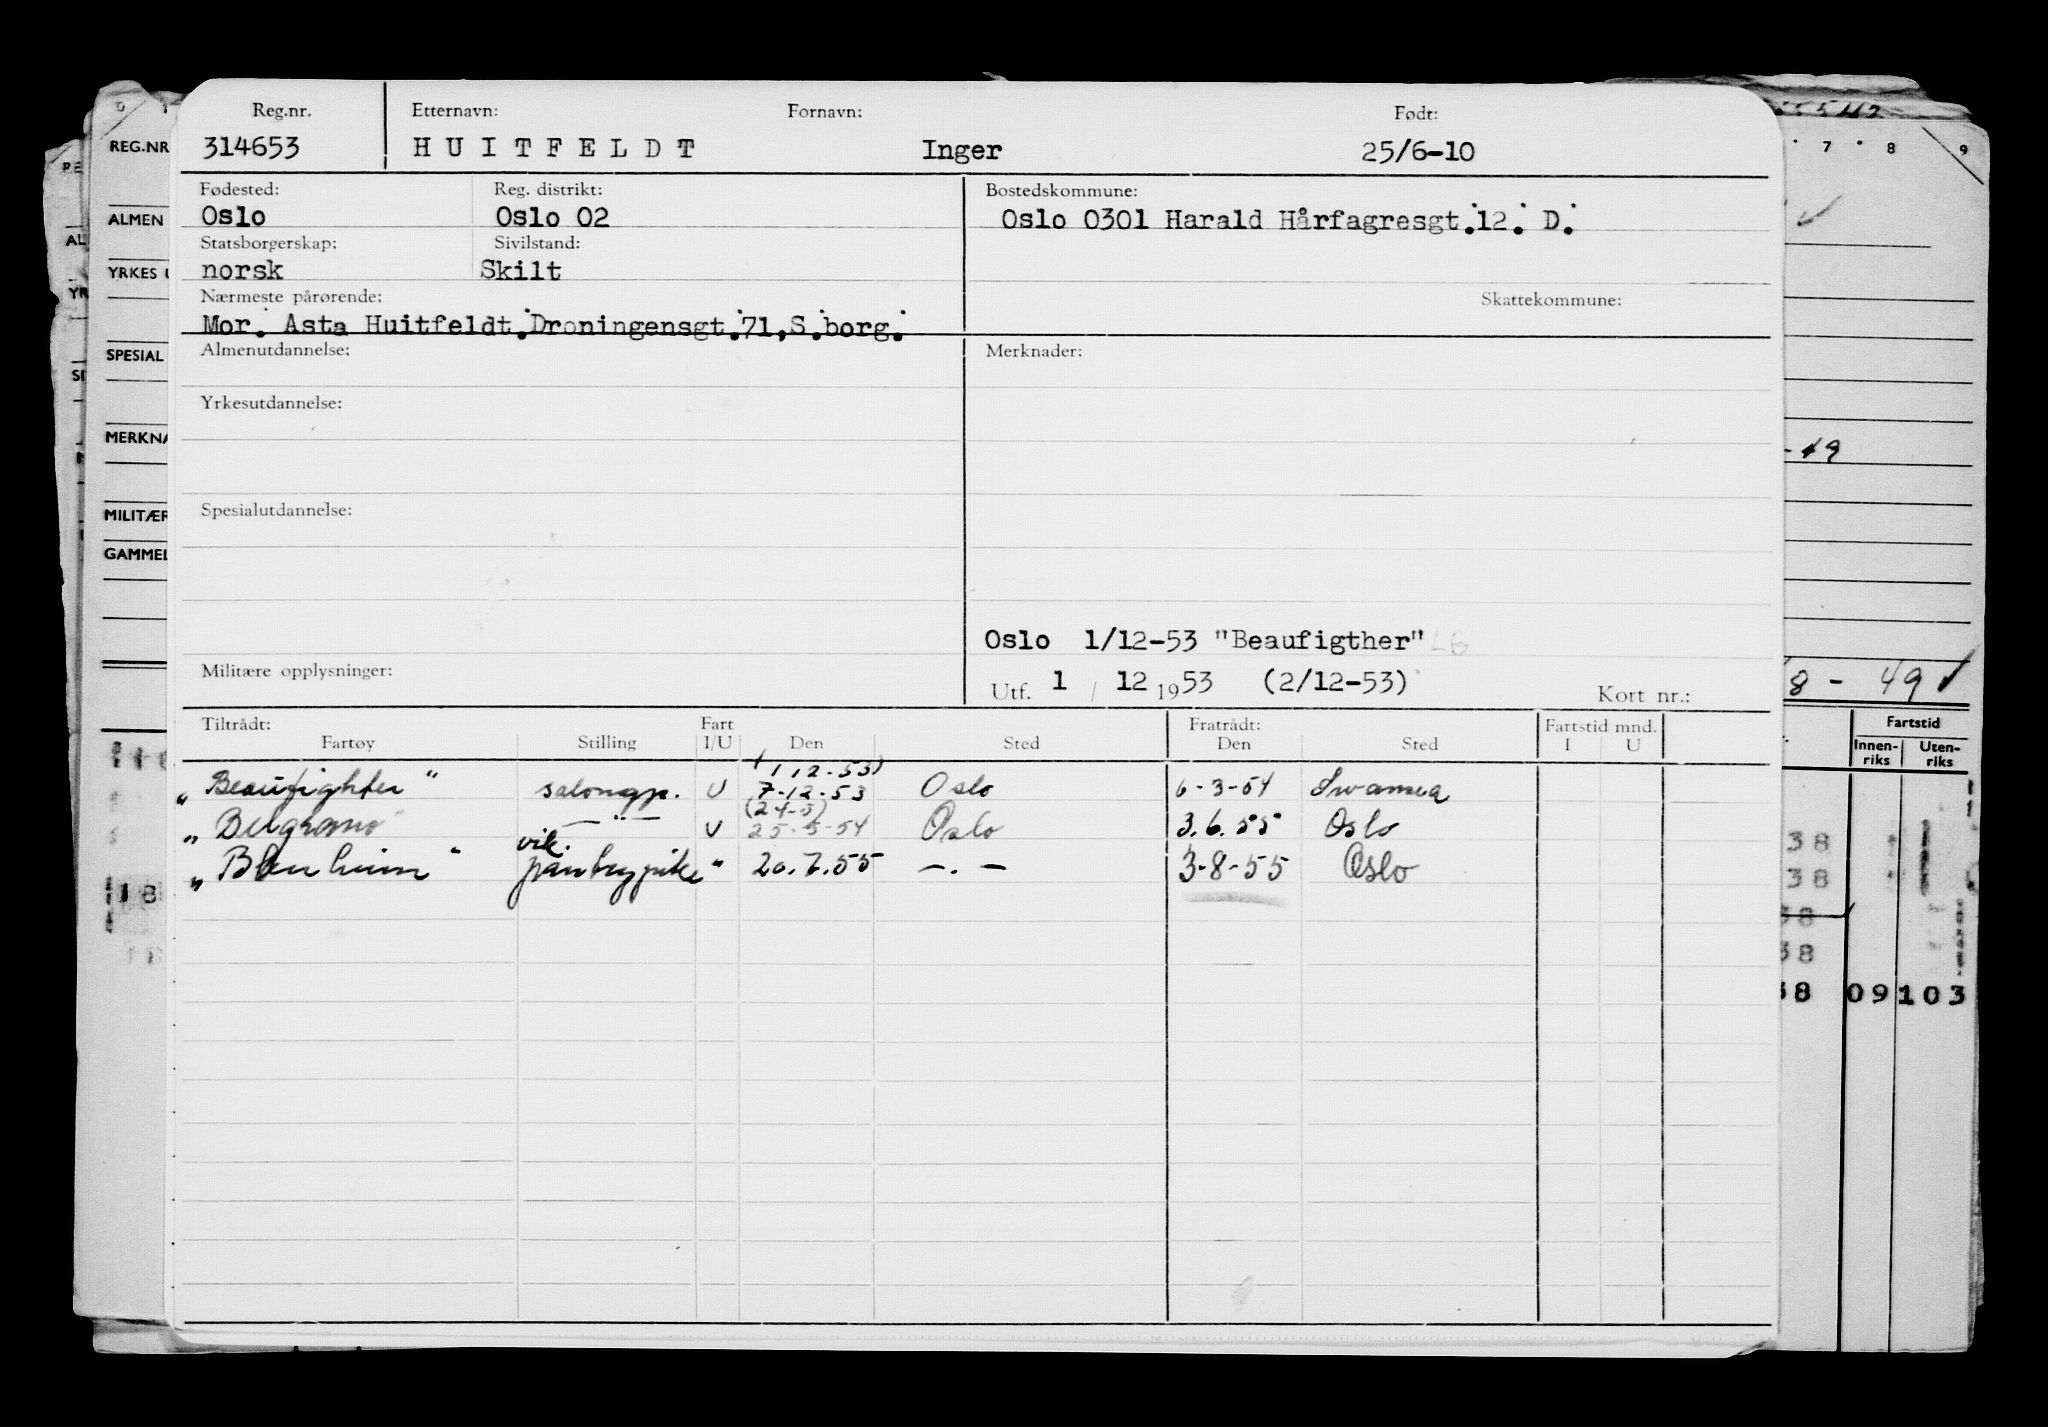 Reg.nr. Etternavn: Fornavn: Født:
314653 HUITFELDT Inger 25/6-10
Fødested: Reg. distrikt: Bostedskommune:
Oslo Oslo 02 Oslo 0301 Harald Hårfagresgt.12. D.
Statsborgerskap: Sivilstand:
norsk Skilt
Nærmeste pårørende: Skattekommune:
Mor. Asta Huitfeldt.Droningensgt.71,S.borg.
Almenutdannelse: Merknader:
Yrkesutdannelse:
Spesialutdannelse:
Oslo 1/12-53 "Beaufigther"
Militære opplysninger: Utf. 1 / 12 1953 (2/12-53) Kort nr.:
Tiltrådt: Fart Fratrådt: Fartstid mnd.
Fartøy Stilling I/U Den Sted Den Sted I U
(1 12-53)
„Beaufighter" salongp. U 7-12-53 Oslo 6-3-54 Swansea
(24-5)
„Belgrano" —"— U 25-5-54 Oslo 3.6.55 Oslo
vik.
„Blenheim" pantrypike " 20.7.55 —.— 3-8-55 Oslo
REG.NR
ALMEN
YRKES U
SPESIAL
MERKNA
MILITÆR
GAMMEL
18
7 8 9
-49
8 - 49
Fartstid
Innen-riks Uten-riks
38
38
38
38
38 09 103